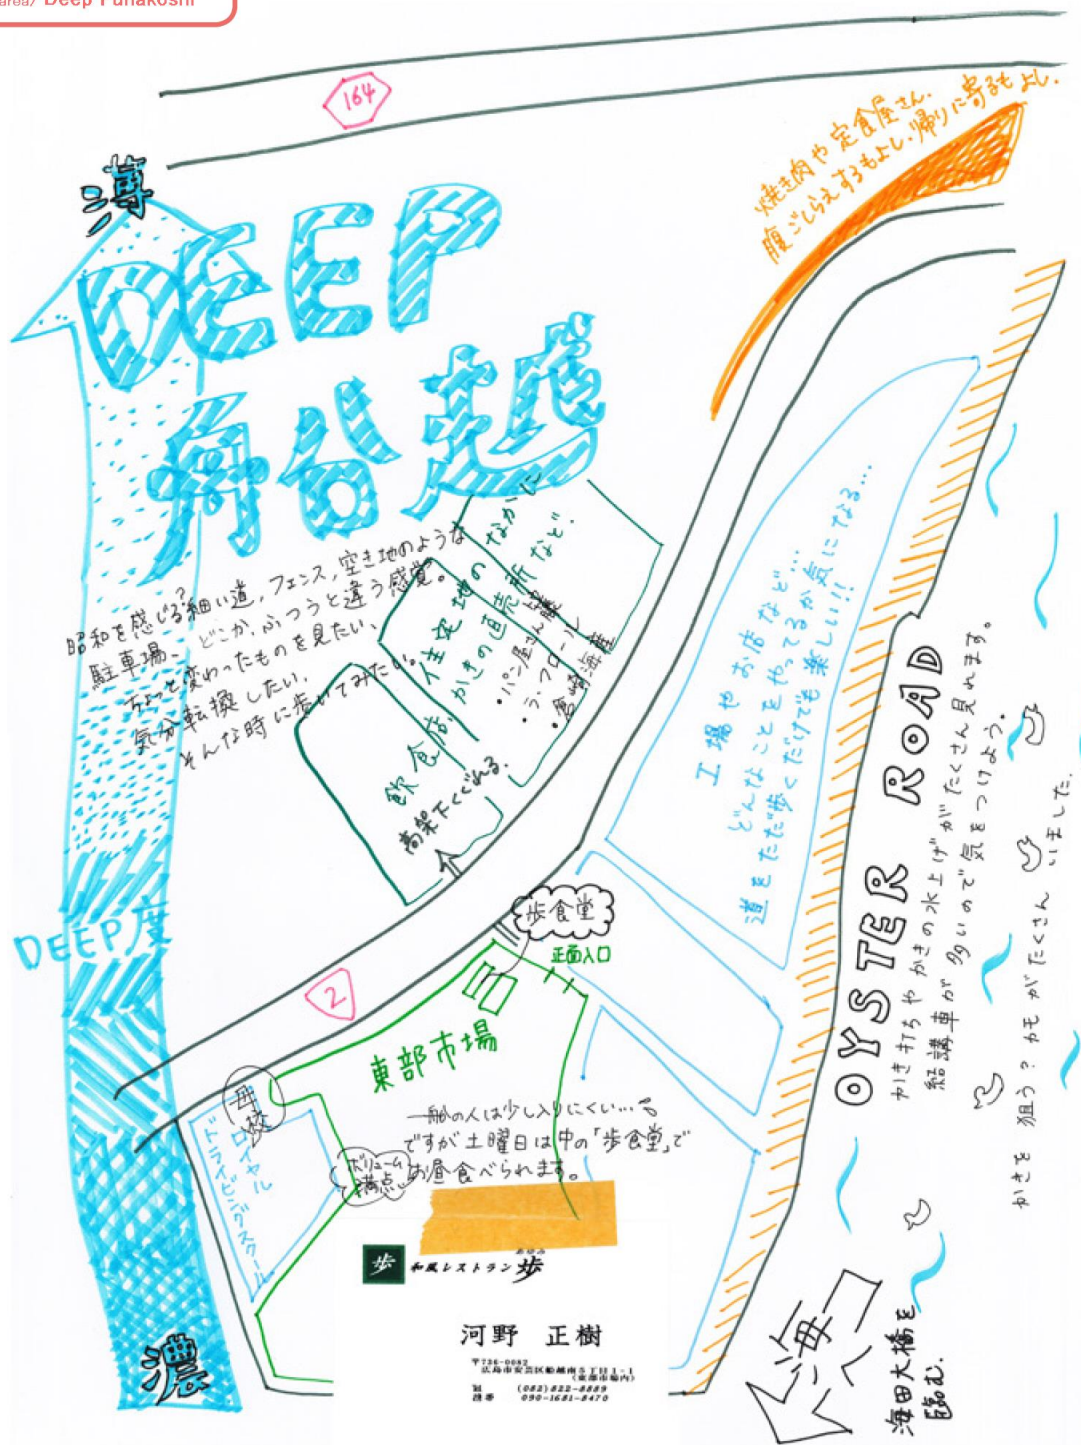 Deep Funakoshi
164
薄
DEEP
舟谷越
焼き肉や定食屋さん.
腹ごしらえするもよし.帰りに寄るもよし.
昭和を感じる?細い道,フェンス,空き地のような
駐車場、どこか,ふつうと違う感覚。
ちょっと変わったものを見たい、
気分転換したい,
そんな時に歩いてみたい。
住宅地のなかに
かきの直売所など.
・パン屋さん
飲食店
高架下くぐれる.
工場やお店など…
どんなことをやってるか気になる…
道をただ歩くだけでも楽しい!!
OYSTER ROAD
かき打ちやかきの水上げがたくさん見れます。
結講車が多いので気をつけよう。
かきを狙う?カモがたくさんいました.
DEEP度
2
歩食堂
正面入口
東部市場
母校
ロイヤル
ドライビングスクール
一般の人は少し入りにくい…
ですが土曜日は中の「歩食堂」で
お昼食べられます。
ボリューム
満点
歩 和風レストラン 歩
河野 正樹
〒736-0082
広島市安芸区船越南5丁目1-1
(東部市場内)
(082)822-8889
携帯 090-1681-8470
濃
海
海田大橋を
臨む.